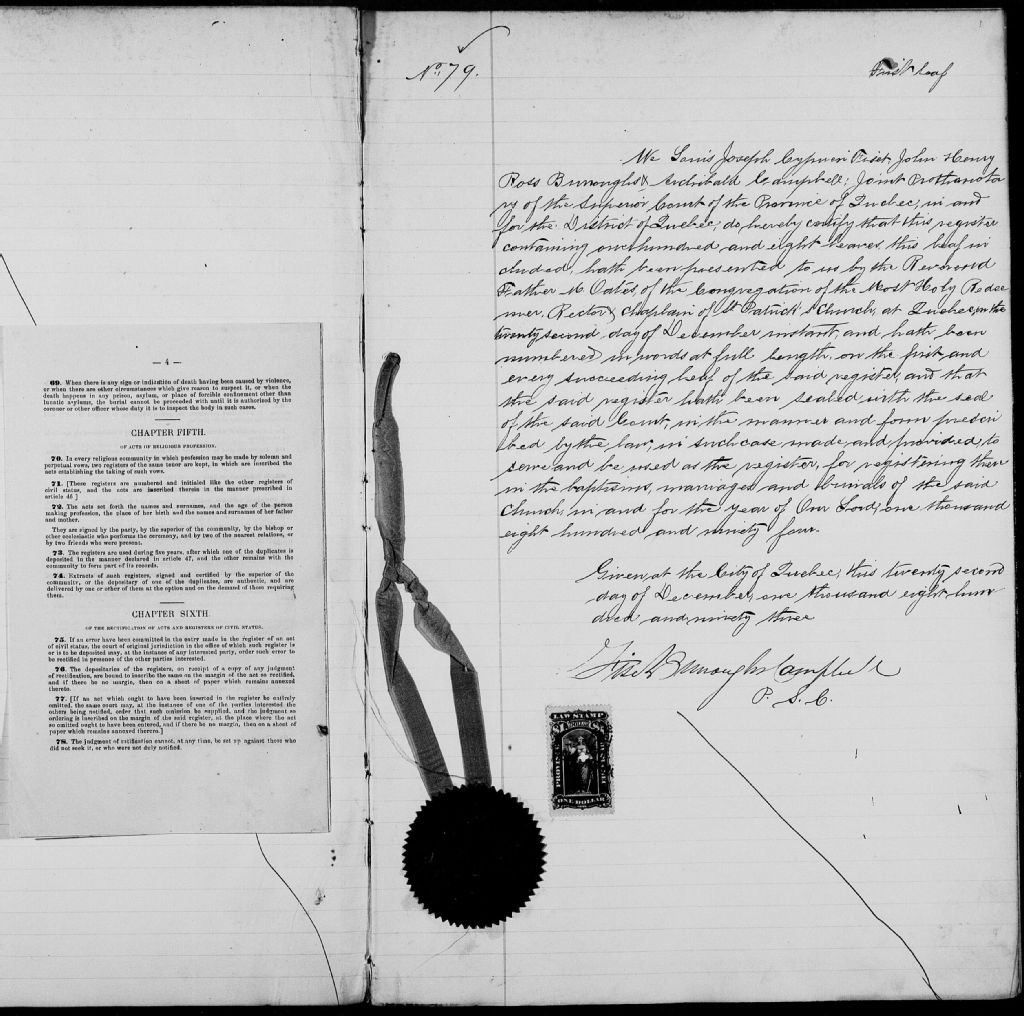 — 4 —
69. When there is any sign or indication of death having been caused by violence,
or when there are other circumstances which give reason to suspect it, or when the
death happens in any prison, asylum, or place of forcible confinement other than
lunatic asylums, the burial cannot be proceeded with until it is authorized by the
coroner or other officer whose duty it is to inspect the body in such cases.
CHAPTER FIFTH.
OF ACTS OF RELIGIOUS PROFESSION.
70. In every religious community in which profession may be made by solemn and
perpetual vows, two registers of the same tenor are kept, in which are inscribed the
acts establishing the taking of such vows.
71. [These registers are numbered and initialed like the other registers of
civil status, and the acts are inscribed therein in the manner prescribed in
article 46.]
72. The acts set forth the names and surnames, and the age of the person
making profession, the place of her birth and the names and surnames of her father
and mother.
They are signed by the party, by the superior of the community, by the bishop or
other ecclesiastic who performs the ceremony, and by two of the nearest relations, or
by two friends who were present.
73. The registers are used during five years, after which one of the duplicates is
deposited in the manner declared in article 47, and the other remains with the
community to form part of its records.
74. Extracts of such registers, signed and certified by the superior of the
community, or the depositary of one of the duplicates, are authentic, and are
delivered by one or other of them at the option and on the demand of those requiring
them.
CHAPTER SIXTH.
OF THE RECTIFICATION OF ACTS AND REGISTERS OF CIVIL STATUS.
75. If an error have been committed in the entry made in the register of an act
of civil status, the court of original jurisdiction in the office of which such register is
or is to be deposited may, at the instance of any interested party, order such error to
be rectified in presence of the other parties interested.
76. The depositaries of the registers, on receipt of a copy of any judgment
of rectification, are bound to inscribe the same on the margin of the act so rectified,
and if there be no margin, then on a sheet of paper which remains annexed
thereto.
77. [If an act which ought to have been inserted in the register be entirely
omitted, the same court may, at the instance of one of the parties interested the
others being notified, order that such omission be supplied, and the judgment so
ordering is inscribed on the margin of the said register, at the place where the act
so omitted ought to have been entered, and if there be no margin, then on a sheet of
paper which remains annexed thereto.]
78. The judgment of ratification cannot, at any time, be set up against those who
did not seek it, or who were not duly notified.
No. 79.
First leaf
We Louis Joseph Cyprien Fiset John Henry
Ross Burroughs & Archibald Campbell; Joint Prothonota
ry of the Superior Court of the Province of Quebec, in and
for the District of Quebec, do hereby certify that this register
containing one hundred and eight leaves this leaf in
cluded, hath been presented to us by the Reverend
Father M. Oates, of the Congregation of the Most Holy Redee
mer, Rector & chaplain of St Patrick's Church, at Quebec, on the
twenty second day of December instant, and hath been
numbered in words at full length, on the first and
every succeeding leaf of the said register, and that
the said register hath been sealed with the seal
of the said Court, in the manner and form prescri
bed by the law, in such case made and provided, to
serve and be used as the register, for registering there
in the baptisms, marriages and burials of the said
Church, in and for the year of Our Lord, one thousand
eight hundred and ninety four.
Given, at the City of Quebec, this twenty second
day of December, one thousand eight hun
dred and ninety three
Fiset Burroughs Campbell
P. S. C.
LAW STAMP
PROVINCE
ONE DOLLAR